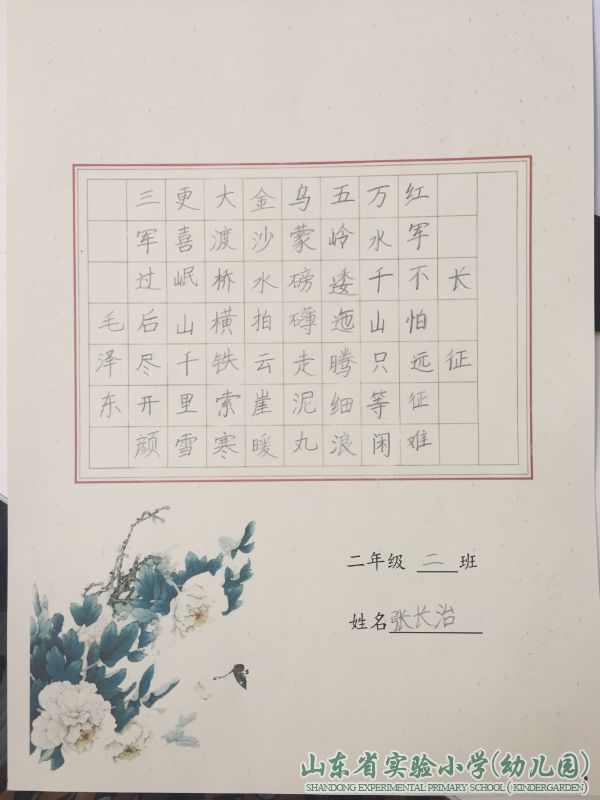 长征
红军不怕远征难
万水千山只等闲
五岭逶迤腾细浪
乌蒙磅礴走泥丸
金沙水拍云崖暖
大渡桥横铁索寒
更喜岷山千里雪
三军过后尽开颜
毛泽东
二年级 二 班
姓名张长治
山东省实验小学(幼儿园)
SHANDONG EXPERIMENTAL PRIMARY SCHOOL ( KINDERGARDEN)